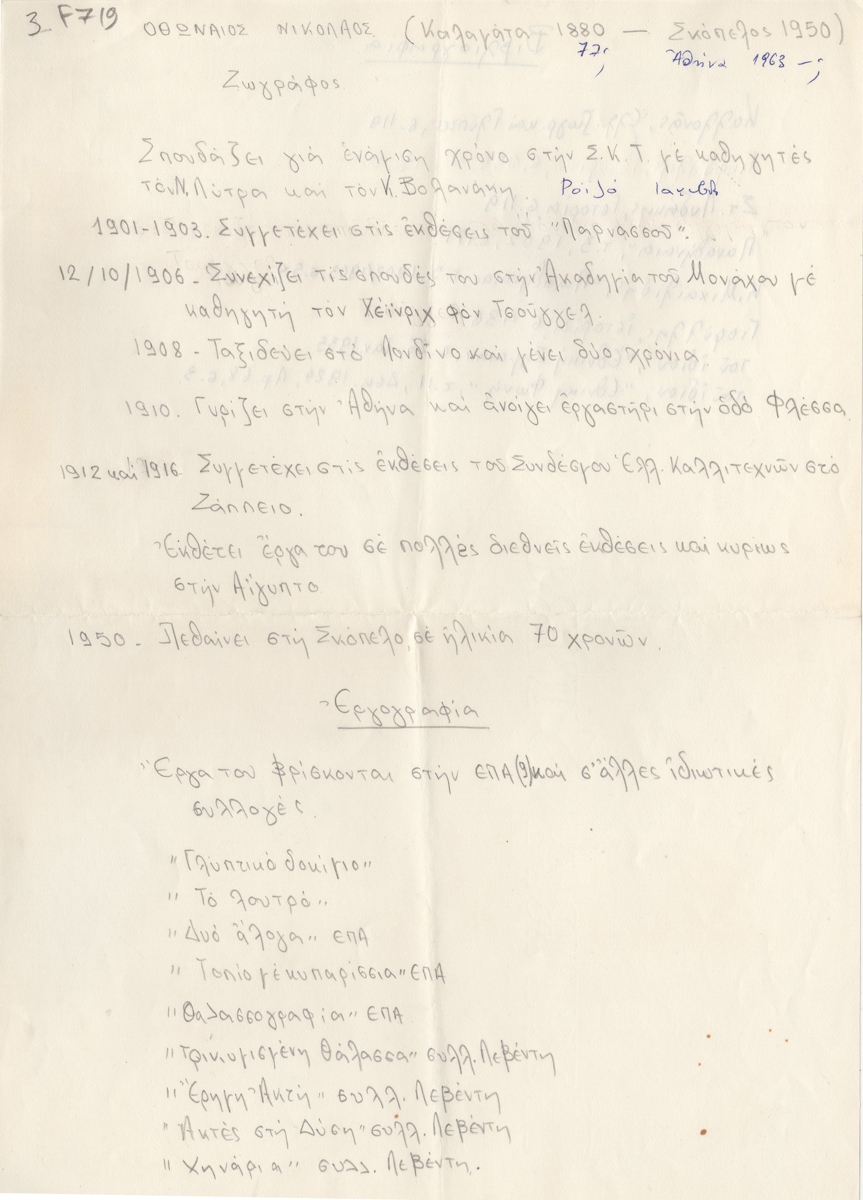 3 F719
ΟΘΩΝΑΙΟΣ ΝΙΚΟΛΑΟΣ (Καλαμάτα 1880 — Σκόπελος 1950)
77; Ἀθήνα 1963 –;
Ζωγράφος
Σπουδάζει γιά ἑνάμιση χρόνο στήν Σ.Κ.Τ. μέ καθηγητές
τόν Ν. Λύτρα καί τόν Κ. Βολανάκη. Ροϊλό Ιακωβ
1901-1903. Συμμετέχει στίς ἐκθέσεις τοῦ "Παρνασσοῦ".
12/10/1906 - Συνεχίζει τίς σπουδές του στήν Ἀκαδημία τοῦ Μονάχου μέ
καθηγητή τόν Χάϊνριχ φόν Τσούγγελ.
1908 - Ταξιδεύει στό Λονδῖνο καί μένει δύο χρόνια
1910. Γυρίζει στήν Ἀθήνα καί ἀνοίγει ἐργαστήρι στήν ὁδό Φλέσσα
1912 καί 1916 Συμμετέχει στίς ἐκθέσεις τοῦ Συνδέσμου Ἑλλ. Καλλιτεχνῶν στό
Ζάππειο.
Ἐκθέτει ἔργα του σέ πολλές διεθνεῖς ἐκθέσεις καί κυρίως
στήν Αἴγυπτο
1950 - Πεθαίνει στή Σκόπελο, σέ ἡλικία 70 χρονῶν.
Ἐργογραφία
Ἔργα του βρίσκονται στήν ΕΠΑ (9) καί σ' ἄλλες ἰδιωτικές
συλλογές.
"Γλυπτικό δοκίμιο"
"Τό λουτρό"
"Δυό ἄλογα" ΕΠΑ
"Τοπίο μέ κυπαρίσσια" ΕΠΑ
"Θαλασσογραφία" ΕΠΑ
"Τρικυμισμένη θάλασσα" συλλ. Λεβέντη
"Ἔρημη Ἀκτή" συλλ. Λεβέντη
"Ἀκτές στή Δύση" συλλ. Λεβέντη
"Χηνάρια" συλλ. Λεβέντη.